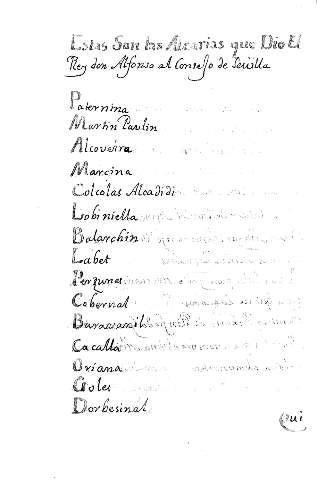 Estas Son las Alcarias que Dio El
Rey don Alfonso al Consejo de Sevilla
Paternina
Martin Paulin
Alcoveira
Marcina
Colcolas Alcadidi
Lobiniella
Balarchin
Labet
Perzunas
Cobernal
Cacalla
Oriana
Goles
Dorbesinal
Qui